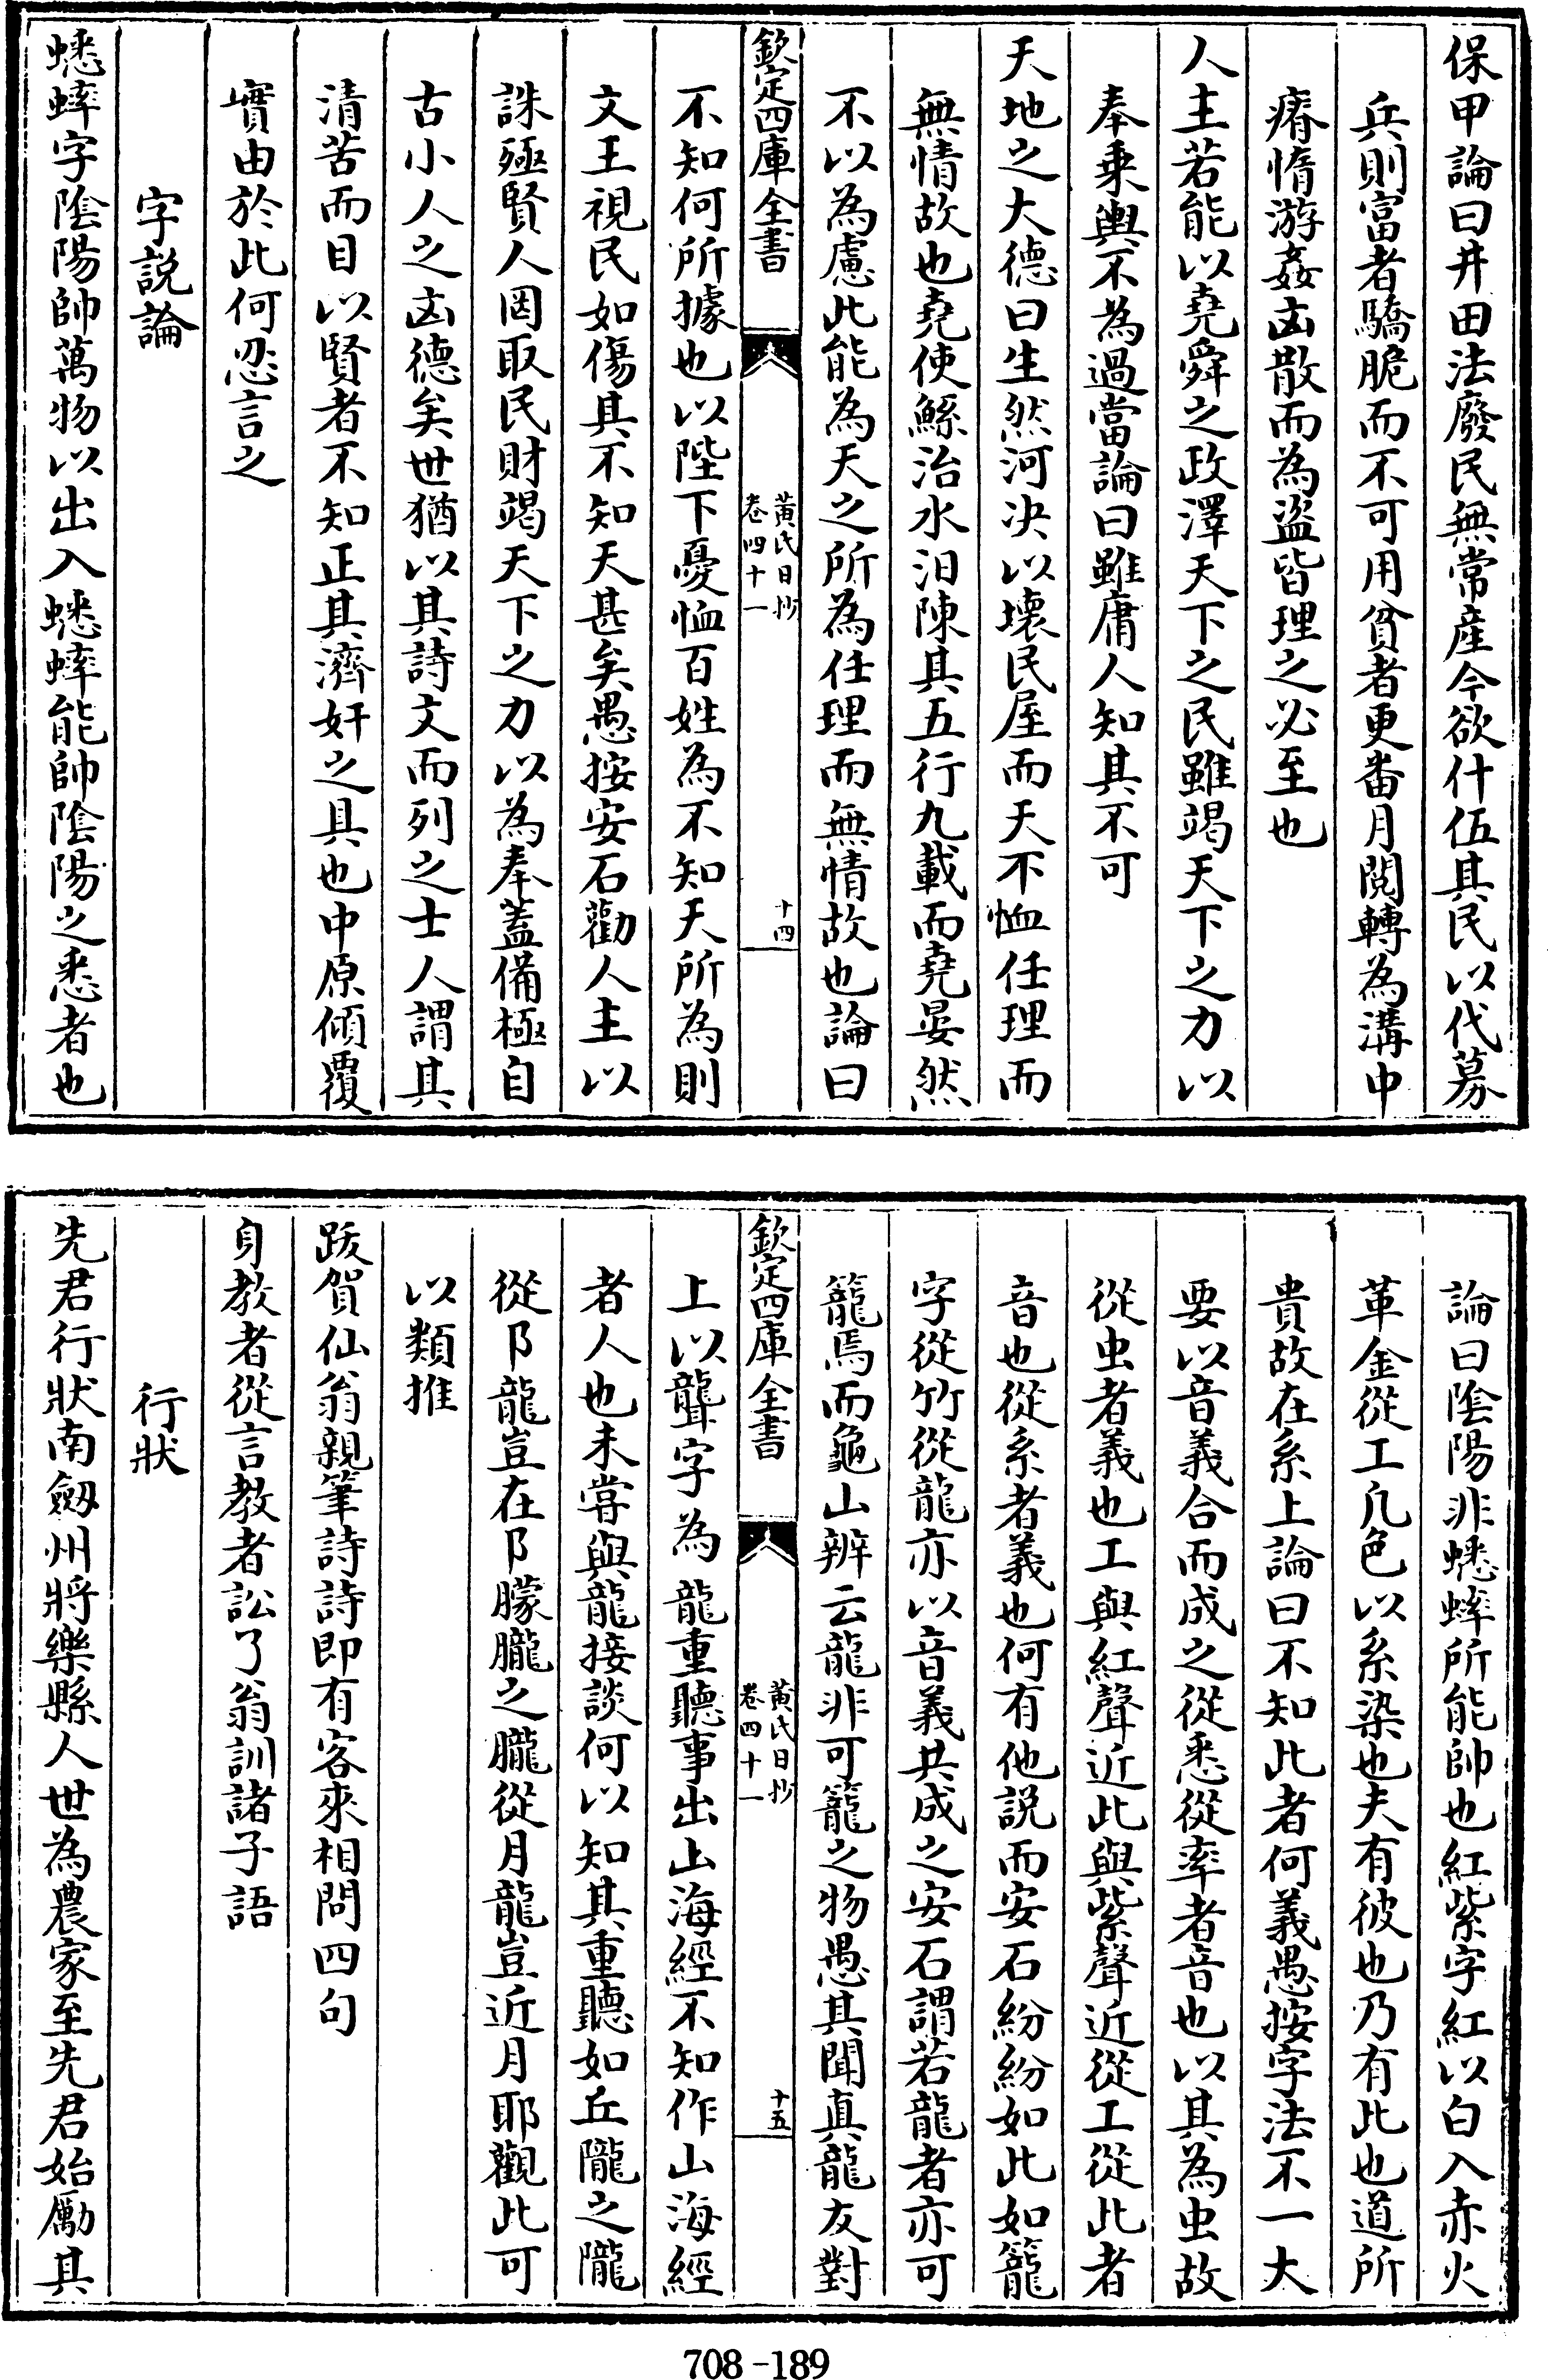 保甲論曰井田法廢民無常産今欲什伍其民以代募
兵則富者驕脆而不可用貧者更番月閱轉為溝中
瘠惰游姦凶散而為盜皆理之必至也
人主若能以堯舜之政澤天下之民雖竭天下之力以
奉乗輿不為過當論曰雖庸人知其不可
天地之大德曰生然河决以壞民屋而天不恤任理而
無情故也堯使鯀治水汨陳其五行九載而堯晏然
不以為慮此能為天之所為任理而無情故也論曰
欽定四庫全書
黄氏日抄
卷四十一
十四
不知何所據也以陛下憂恤百姓為不知天所為則
文王視民如傷其不知天甚矣愚按安石勸人主以
誅殛賢人罔取民財竭天下之力以為奉蓋備極自
古小人之凶德矣世猶以其詩文而列之士人謂其
清苦而目以賢者不知正其濟奸之具也中原傾覆
實由於此何忍言之
字説論
蟋蟀字陰陽帥萬物以出入蟋蟀能帥陰陽之悉者也
論曰陰陽非蟋蟀所能帥也紅紫字紅以白入赤火
革金從工凡色以糸染也夫有彼也乃有此也道所
貴故在糸上論曰不知此者何義愚按字法不一大
要以音義合而成之從悉從率者音也以其為虫故
從虫者義也工與紅聲近此與紫聲近從工從此者
音也從糸者義也何有他説而安石紛紛如此如籠
字從竹從龍亦以音義共成之安石謂若龍者亦可
籠焉而龜山辨云龍非可籠之物愚其聞真龍友對
欽定四庫全書
黄氏日抄
卷四十一
十五
上以聾字為龍重聽事出山海經不知作山海經
者人也未嘗與龍接談何以知其重聽如丘隴之隴
從阝龍豈在阝朦朧之朧從月龍豈近月耶觀此可
以類推
跋賀仙翁親筆詩詩即有客來相問四句
身教者從言教者訟了翁訓諸子語
行狀
先君行狀南劔州將樂縣人世為農家至先君始勵其
708-189